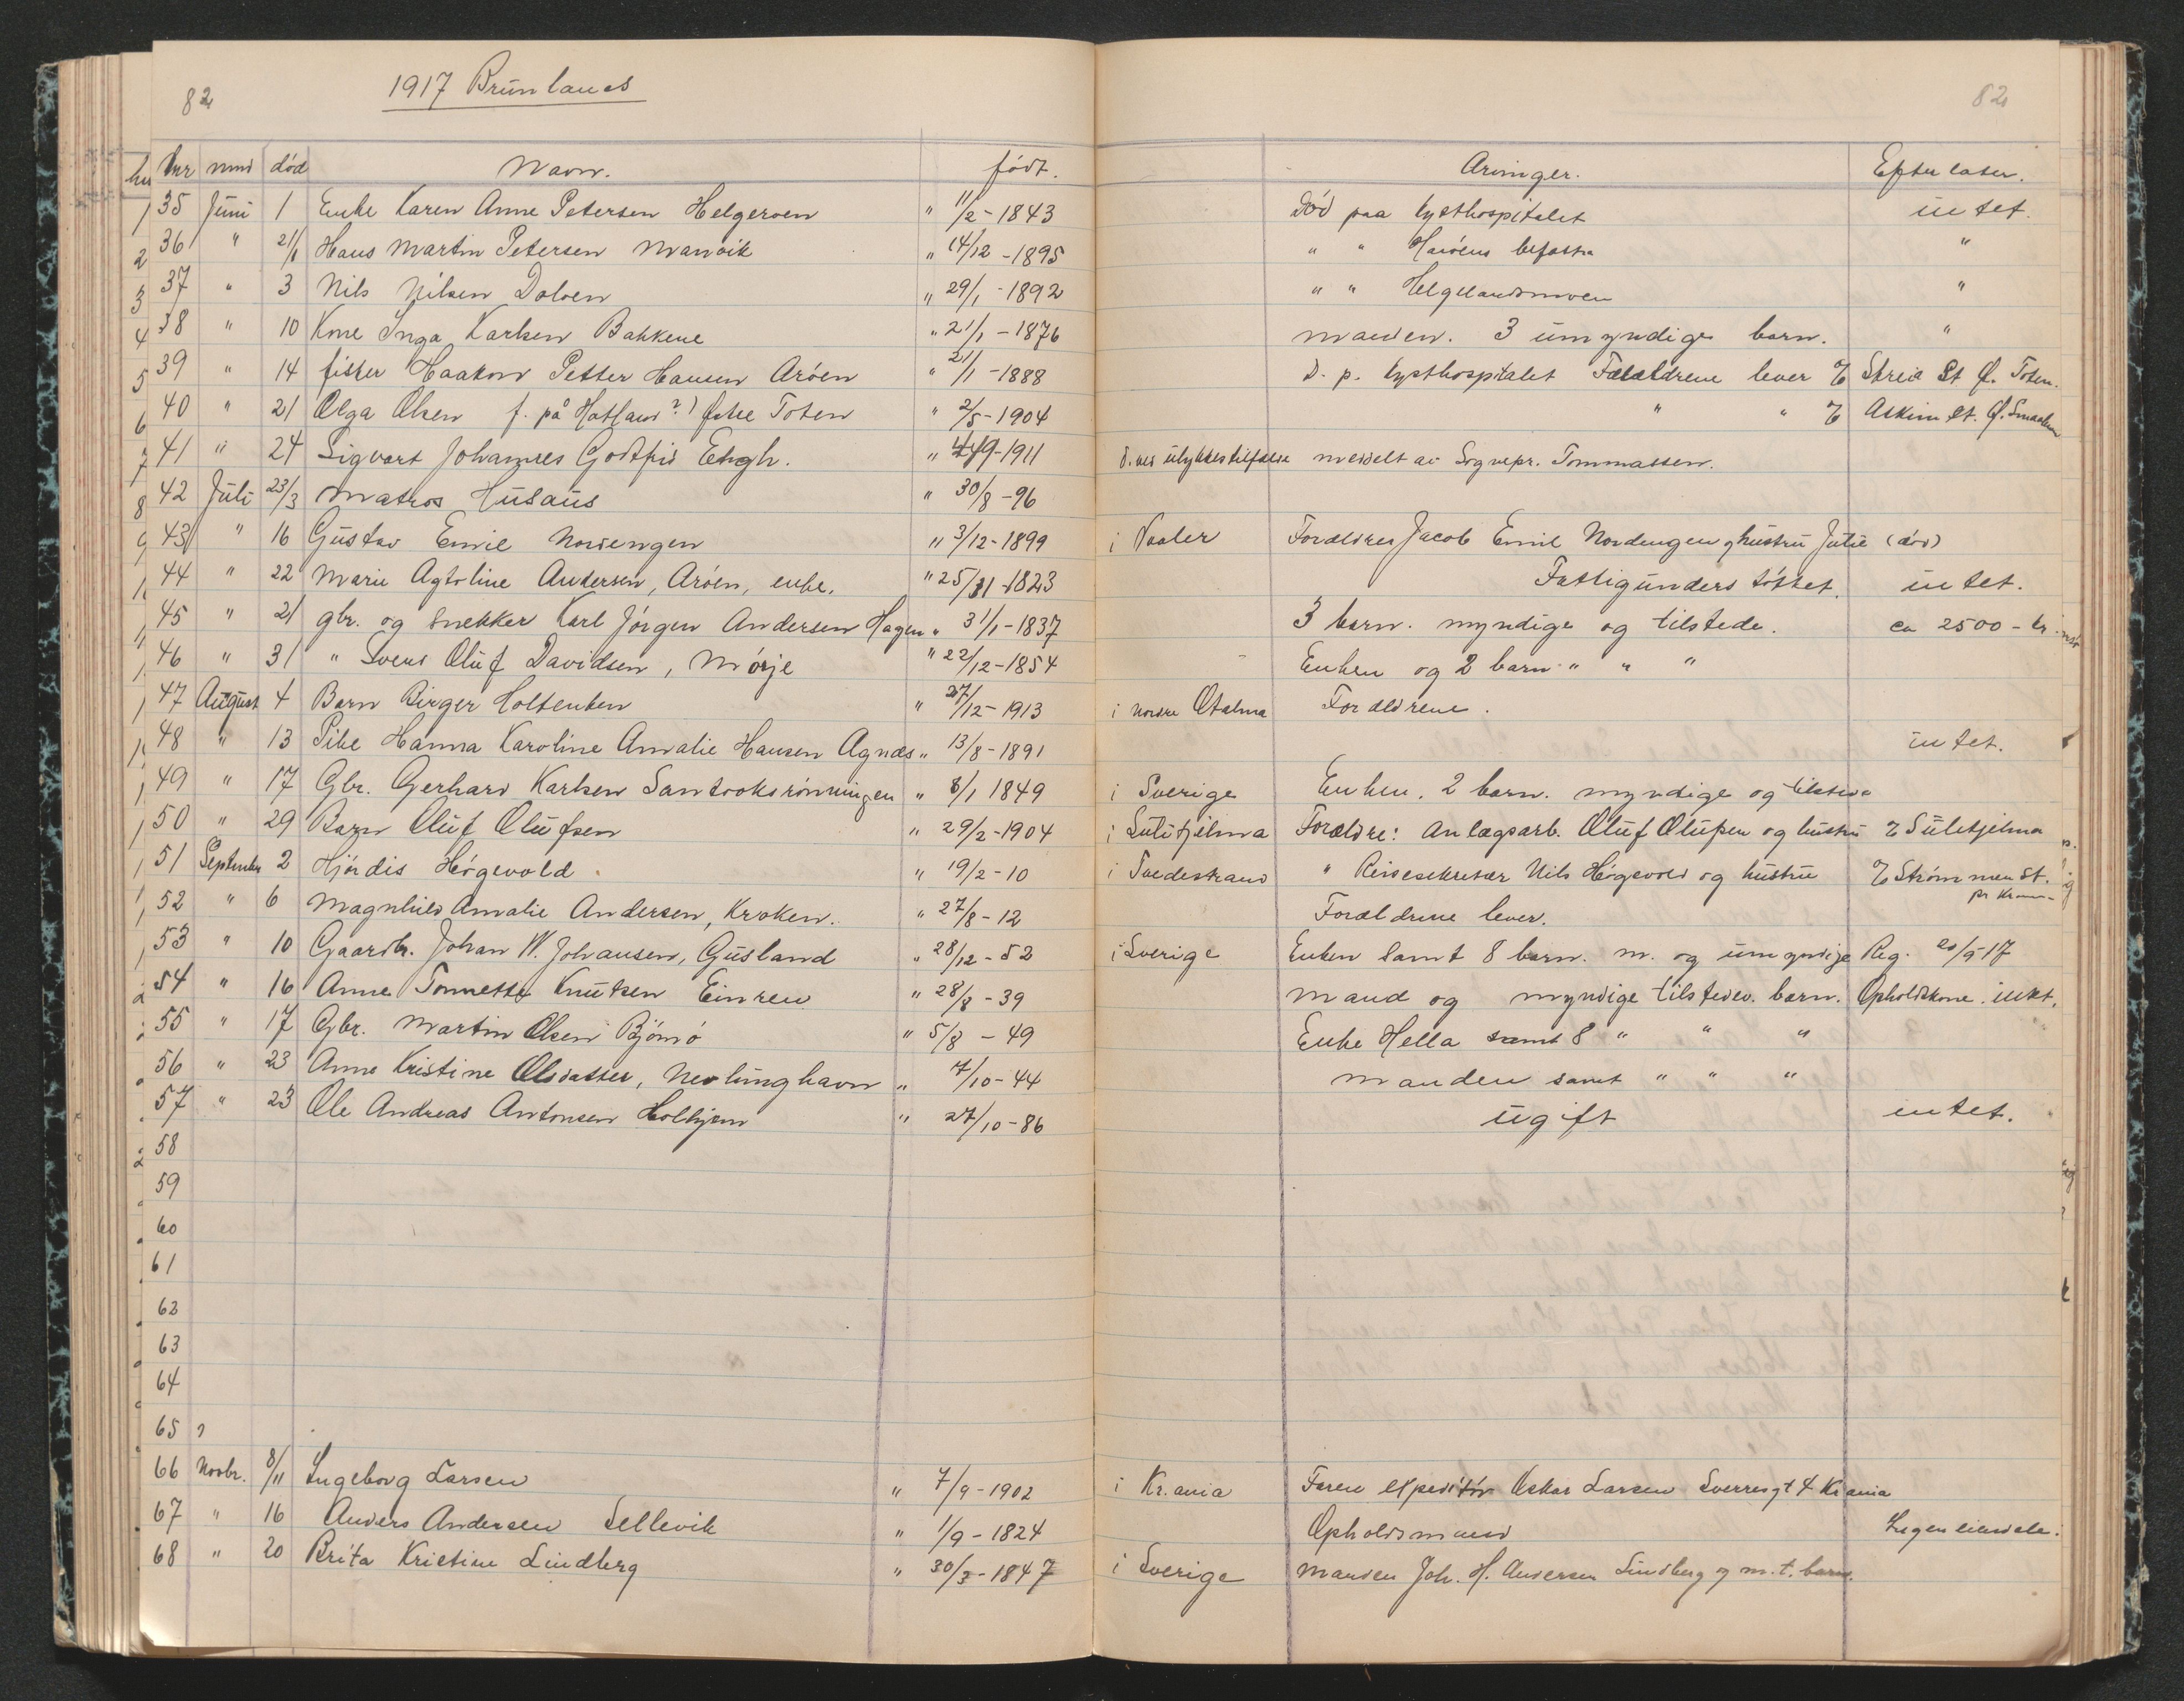 82 1917 Brunlanes 82
lnr mnd død Navn. født. Arvinger. Efterlater.
35 Juni 1 Enke Karen Anne Petersen Helgeroen " 11/2 - 1843 Død paa Kysthospitalet intet.
36 " 21/1 Hans Martin Petersen Manvik " 14/12 - 1895 " " "
37 " 3 Nils Nilsen Dolven " 29/1 - 1892 " " Helgelandsmoen "
38 " 10 Kone Inga Karlsen Bakkene " 21/1 - 1876 manden. 3 umyndige barn. "
39 " 14 fisker Haakon Petter Hansen Arøen " 21/1 - 1888 D. p. Kysthospitalet Forældrene lever % Skreia St Ø. Toten.
40 " 21 Olga Olsen f. på Hotland ?) Østre Toten " 2/5 - 1904 " " % Askim st.
41 " 24 Sigvart Johannes Godtfrid 1911 d. ved ulykkestilfælde meddelt av Sognepr. Tommassen.
42 Juli 23/3 Matros Husaus " 30/8 - 96
43 " 16 Gustav Emil Nordengen " 3/12 - 1899 i Vaaler Forældres Jacob Emil Nordengen og hustru Julie (død)
44 " 22 Marie Agtoline Andersen, Arøen, enke. " 25/ 1823 Fattigunderstøttet. intet.
45 " 21 gbr. og snekker Karl Jørgen Andersen Hagen " 31/1 - 1837 3 barn. myndige og tilstede. ca 2500 - kr.
46 " 31 " Svend Oluf Davidsen, Mørje " 22/12 - 1854 Enken og 2 barn " " "
47 August 4 Barn Birger Holtenken " 27/12 - 1913 i nordre Forældrene.
48 " 13 Pike Hanna Karoline Amalie Hansen Agnæs " 13/8 - 1891 intet.
49 " 17 Gbr. Gerhard Karlsen Santvoksrønningen " 8/1 1849 i Sverige Enken. 2 barn. myndige og tilstede
50 " 29 Barn Oluf Olufsen " 29/2 - 1904 i Sulitjelma Forældre: Anlægsarb. Oluf Olufsen og hustru % Sulitjelma
51 September 2 Hjørdis Høgevold " 19/2 - 10 i Tvedestrand " Reisesekretær Nils Høgevold og hustru % Strømmen St.
52 " 6 Magnhild Amalie Andersen, Kroken. " 27/8 - 12 Forældrene lever.
53 " 10 Gaardbr. Johan W. Johansen, Gusland " 28/12 - 52 i Sverige Enken samt 8 barn. m. og umyndige Reg. 20/9 17
54 " 16 Anne Tonnette Knutsen Einren " 28/8 - 39 Mand og myndige tilstedev. barn. Opholdskone. intet.
55 " 17 Gbr. Martin Olsen Bjømø " 5/8 - 49 Enke Hella samt 8 " " "
56 " 23 Anne Kristine Olsdatter, Nevlunghavn " 7/10 - 44 Manden samt " " "
57 " 23 Ole Andreas Antonsen Holhjem " 27/10 - 86 ugift intet.
58
59
60
61
62
63
64
65 ?
66 Novbr. 8/11 Ingeborg Larsen " 7/9 - 1902 i Kr.ania Faren expeditør Oskar Larsen Sverresgt 4 Kr ania
67 " 16 Anders Andersen Sellevik " 1/9 - 1824 Opholdsmand Ingen eiendele.
68 " 20 Brita Kristine Lindberg " 30/3 - 1847 i Sverige Manden Joh. H. Andersen Lindberg og m. t. barn.